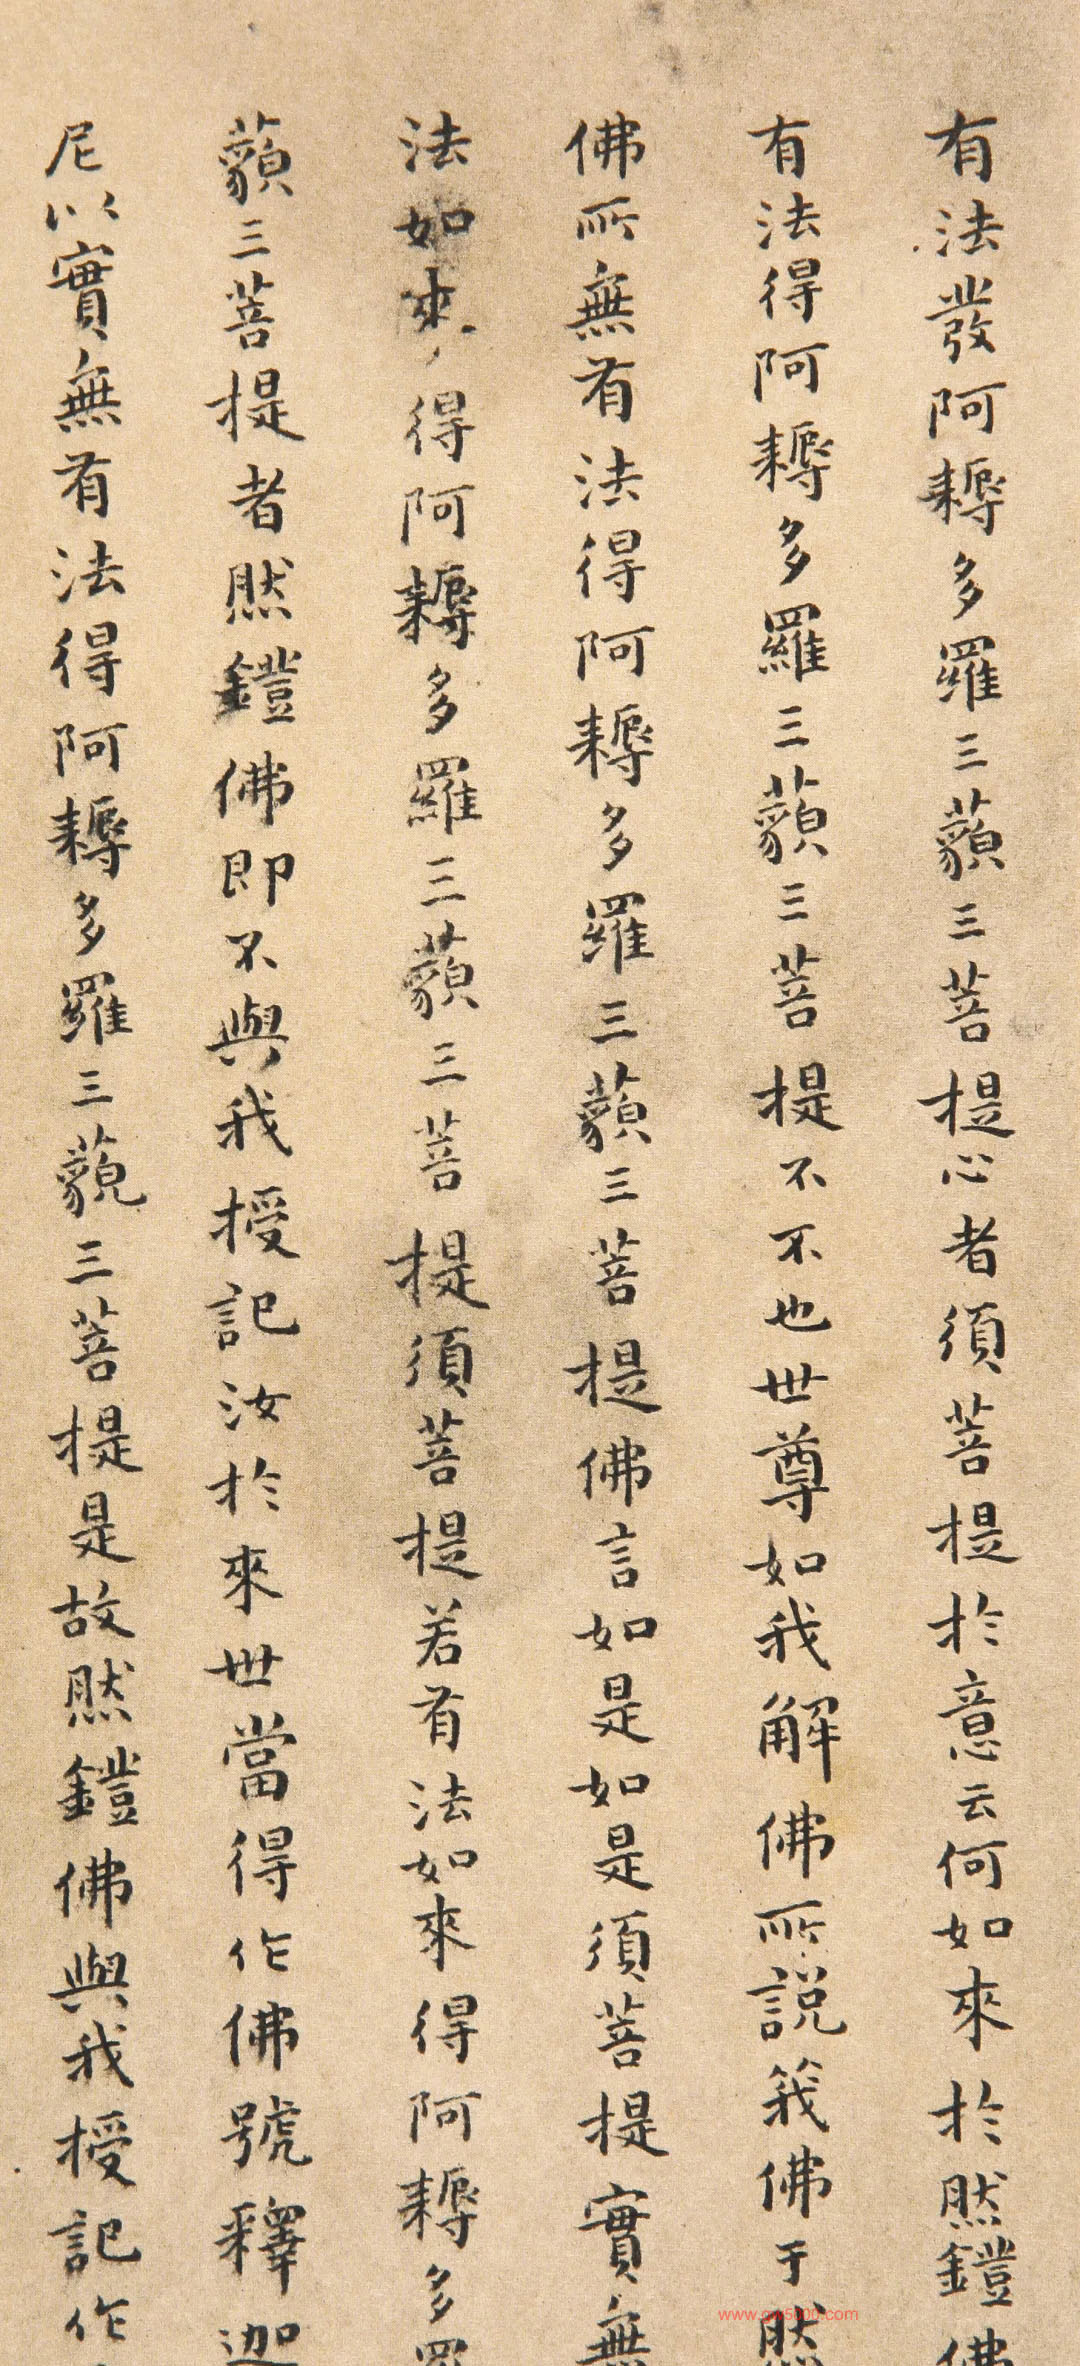 有法發阿耨多羅三藐三菩提心者須菩提於意云何如來於然鐙佛
有法得阿耨多羅三藐三菩提不不也世尊如我解佛所說義佛于然
佛所無有法得阿耨多羅三藐三菩提佛言如是如是須菩提實無
法如來得阿耨多羅三藐三菩提須菩提若有法如來得阿耨多羅
藐三菩提者然鐙佛即不與我授記汝於來世當得作佛號釋迦
尼以實無有法得阿耨多羅三藐三菩提是故然鐙佛與我授記作